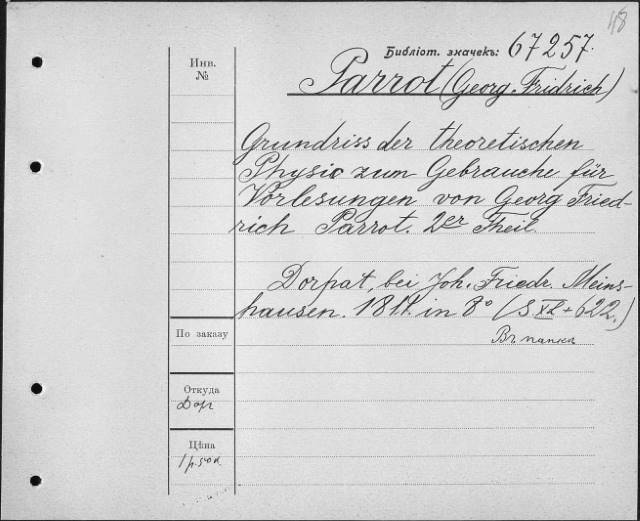 48
Библіот. значекъ: 67257.
Инв.
№
Parrot (Georg Fridrich)
Grundriss der theoretischen
Physic zum Gebrauche für
Vorlesungen von Georg Fried-
rich Parrot. 2er Theil
Dorpat, bei Joh. Friedr. Meins-
hausen. 1811. in 8° (S XL + 622.)
Въ папкѣ
По заказу
Откуда
Дор
Цѣна
1 р. 50 к